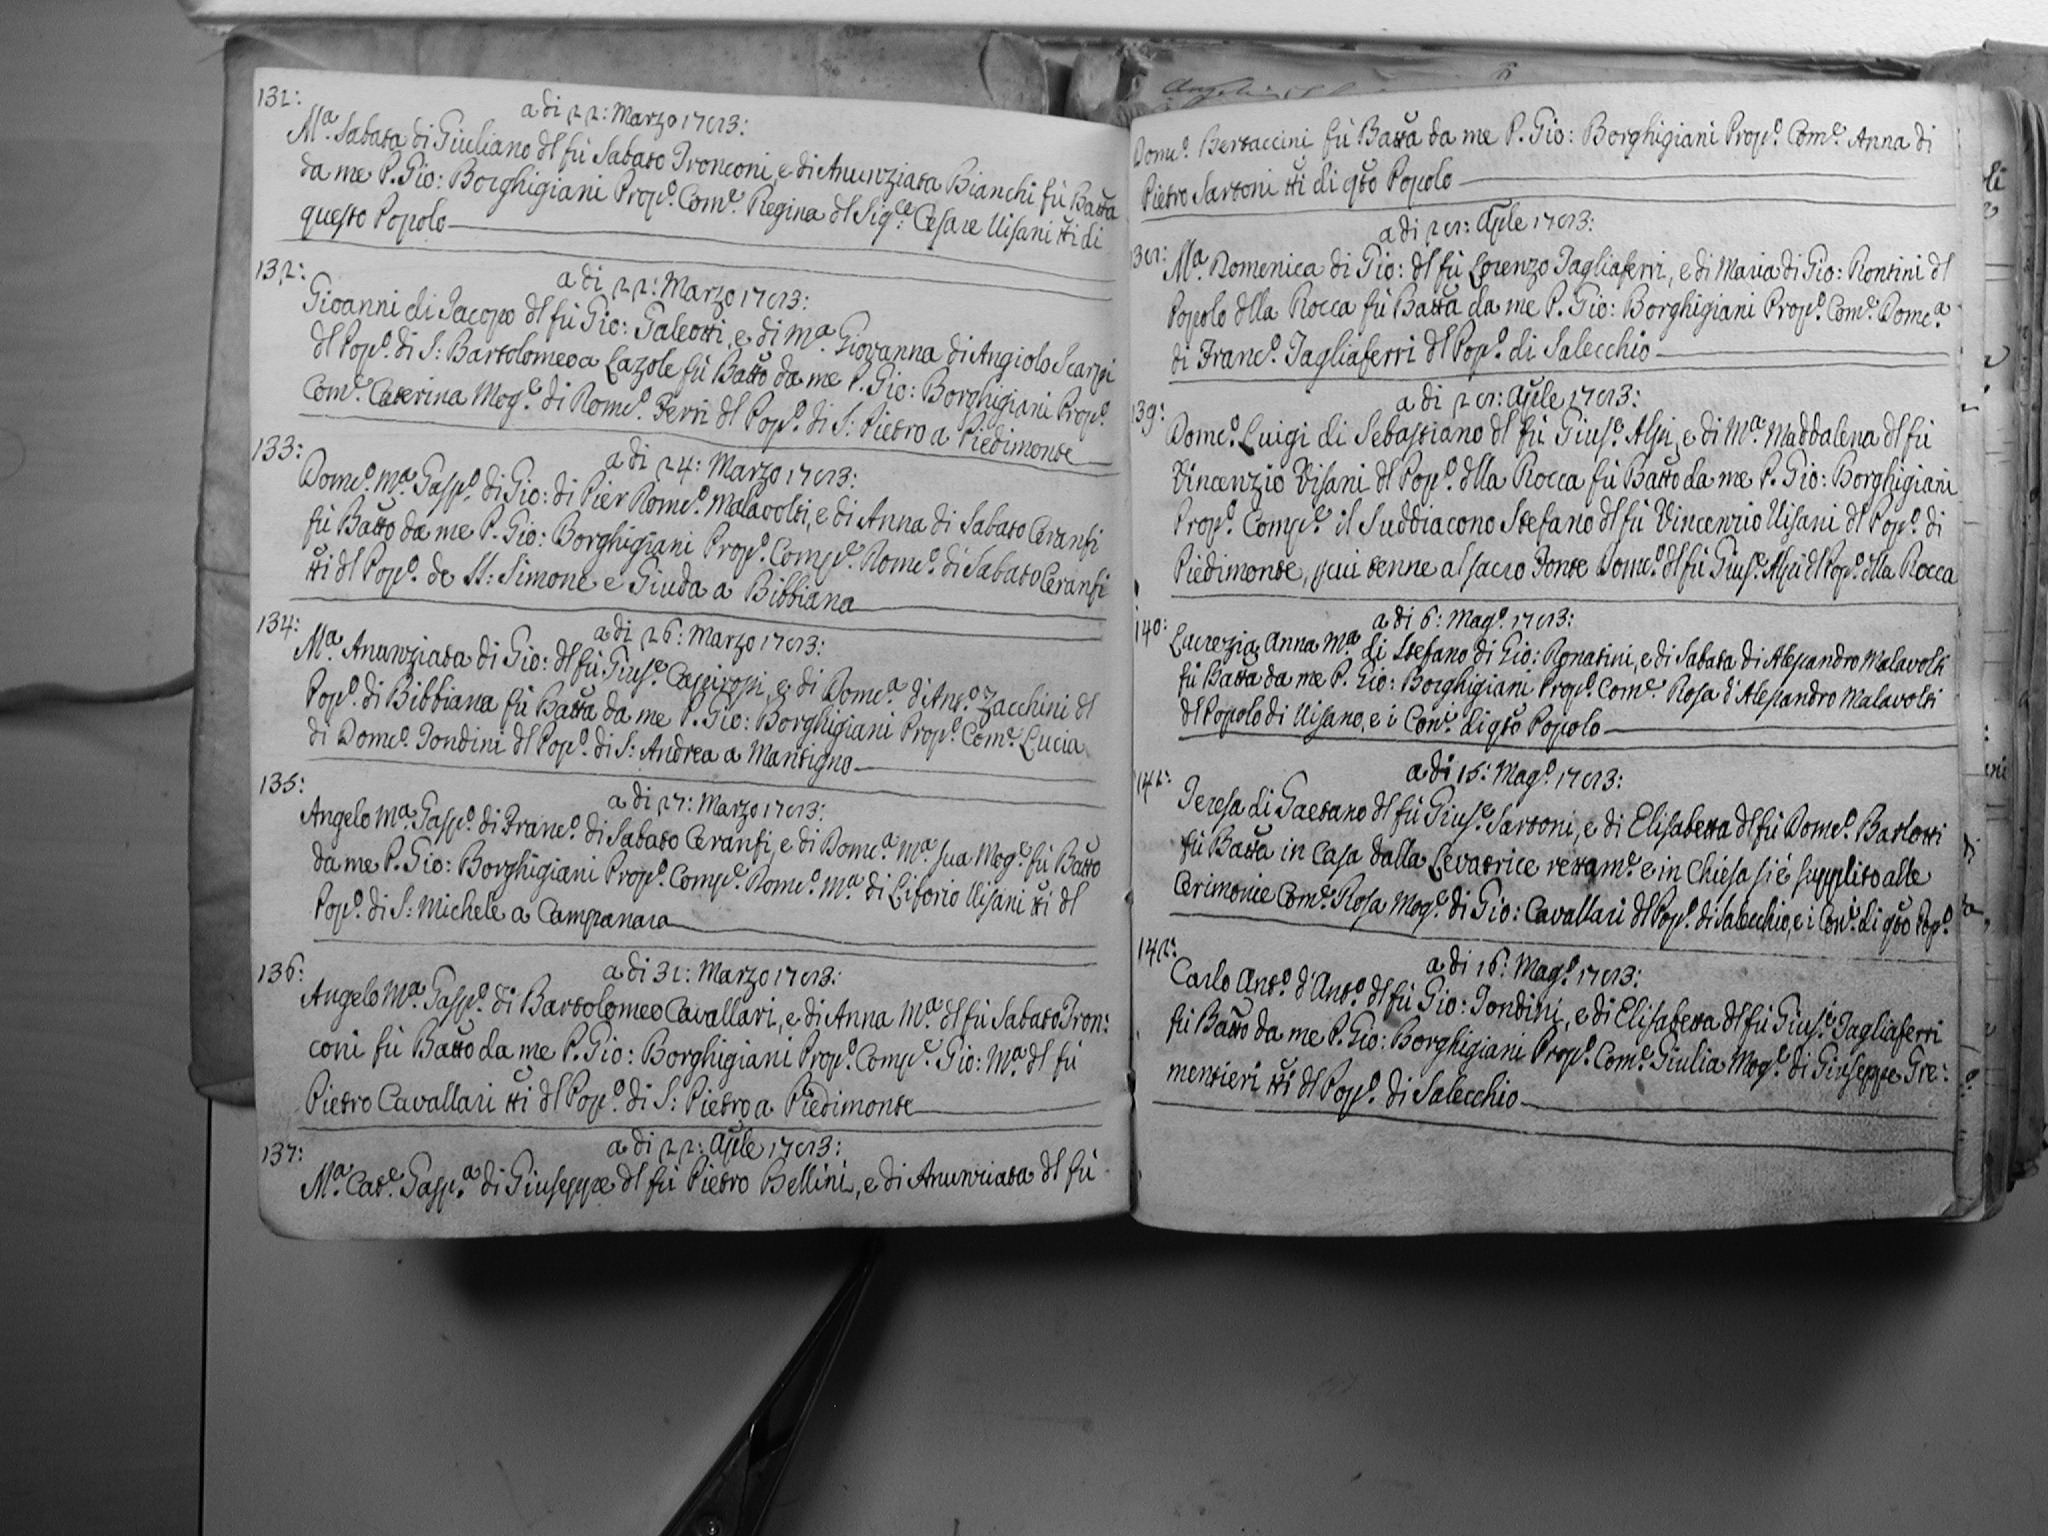 131:
a di 22: Marzo 1783:
Mª. Sabata di Giuliano dl fù Sabato Tronconi, e di Anunziata Bianchi fù Batta
da me P. Gio: Borghigiani Propº. Comᵉ. Regina dl Sigʳᵉ: Cesare Visani tti di
questo Popolo
132:
a di 22: Marzo 1783:
Gioanni di Jacopo dl fù Gio: Galeotti, e di Mª. Giovanna di Angiolo Scarpi
dl Popº. di S: Bartolomeo a Lazole fù Batto da me P. Gio: Borghigiani Propº.
Comᵉ. Caterina Mogᵉ. di Domᶜº. Ferri dl Popº. di S: Pietro a Piedimonte
133:
a di 24: Marzo 1783:
Domᶜº. Mª. Gaspº. di Gio: di Pier Domᶜº. Malavolti, e di Anna di Sabato Ceranfi
fù Batto da me P. Gio: Borghigiani Propº. Compᵉ. Domᶜº. di Sabato Ceranfi
tti dl Popº. de SS: Simone e Giuda a Bibbiana
134:
a di 26: Marzo 1783:
Mª. Anunziata di Gio: dl fù Giusᵉ. Capirossi, e di Domᶜª. di Antº. Zacchini dl
Popº. di Bibbiana fù Batta da me P. Gio: Borghigiani Propº. Comᵉ. Lucia
di Domᶜº. Tondini dl Popº. di S: Andrea a Mantigno
135:
a di 27: Marzo 1783:
Angelo Mª. Gaspº. di Francº. di Sabato Ceranfi, e di Domᶜª. Mª. sua Mogᵉ. fù Batto
da me P. Gio: Borghigiani Propº. Compᵉ. Domᶜº. Mª. di Litorio Visani tti dl
Popº. di S: Michele a Campanara
136:
a di 31: Marzo 1783:
Angelo Mª. Gaspº. di Bartolomeo Cavallari, e di Anna Mª. dl fù Sabato Tron:
coni fù Batto da me P. Gio: Borghigiani Propº. Compᵉ. Gio: Mª. dl fù
Pietro Cavallari tti dl Popº. di S: Pietro a Piedimonte
137:
a di 22: Aple 1783:
Mª. Catᵉ. Gaspª. di Giuseppe dl fù Pietro Bellini, e di Anunziata dl fù
Domᶜº. Bertaccini fù Batta da me P. Gio: Borghigiani Propº. Comᵉ. Anna di
Pietro Sartoni tti di qto Popolo
a di 28: Aple 1783:
138:
Mª. Domenica di Gio: dl fù Lorenzo Tagliaferri, e di Maria di Gio: Rontini dl
Popolo dlla Rocca fù Batta da me P. Gio: Borghigiani Propº. Comᵉ. Domᶜª.
di Francº. Tagliaferri dl Popº. di Salecchio
a di 28: Aple 1783:
139:
Domᶜº. Luigi di Sebastiano dl fù Giusᵉ. Alpi, e di Mª. Maddalena dl fù
Vincenzio Visani dl Popº. dlla Rocca fù Batto da me P. Gio: Borghigiani
Propº. Compᵉ. il Suddiacono Stefano dl fù Vincenzio Visani dl Popº. di
Piedimonte, p cui tenne al sacro Fonte Domᶜº. dl fù Giusᵉ. Alpi dl Popº. dlla Rocca
a di 6: Magº. 1783:
140:
Lucrezia Anna Mª. di Stefano di Gio: Donatini, e di Sabata di Alessandro Malavolti
fù Batta da me P. Gio: Borghigiani Propº. Comᵉ. Rosa d'Alessandro Malavolti
dl Popolo di Visano, e i Conⁱ. di qto Popolo
a di 15: Magº. 1783:
141:
Teresa di Gaetano dl fù Giusᵉ. Sartoni, e di Elisabetta dl fù Domᶜº. Barlotti
fù Batta in Casa dalla Levatrice rettamᵉ. e in Chiesa si è supplito alle
Cerimonie Comᵉ. Rosa Mogᵉ. di Gio: Cavallari dl Popº. di Salecchio, e i Conⁱ. di qto Popº.
a di 16: Magº. 1783:
142:
Carlo Antº. d'Antº. dl fù Gio: Tondini, e di Elisabetta dl fù Giusᵉ. Tagliaferri
fù Batto da me P. Gio: Borghigiani Propº. Comᵉ. Giulia Mogᵉ. di Giuseppe Gre:
mentieri tti dl Popº. di Salecchio